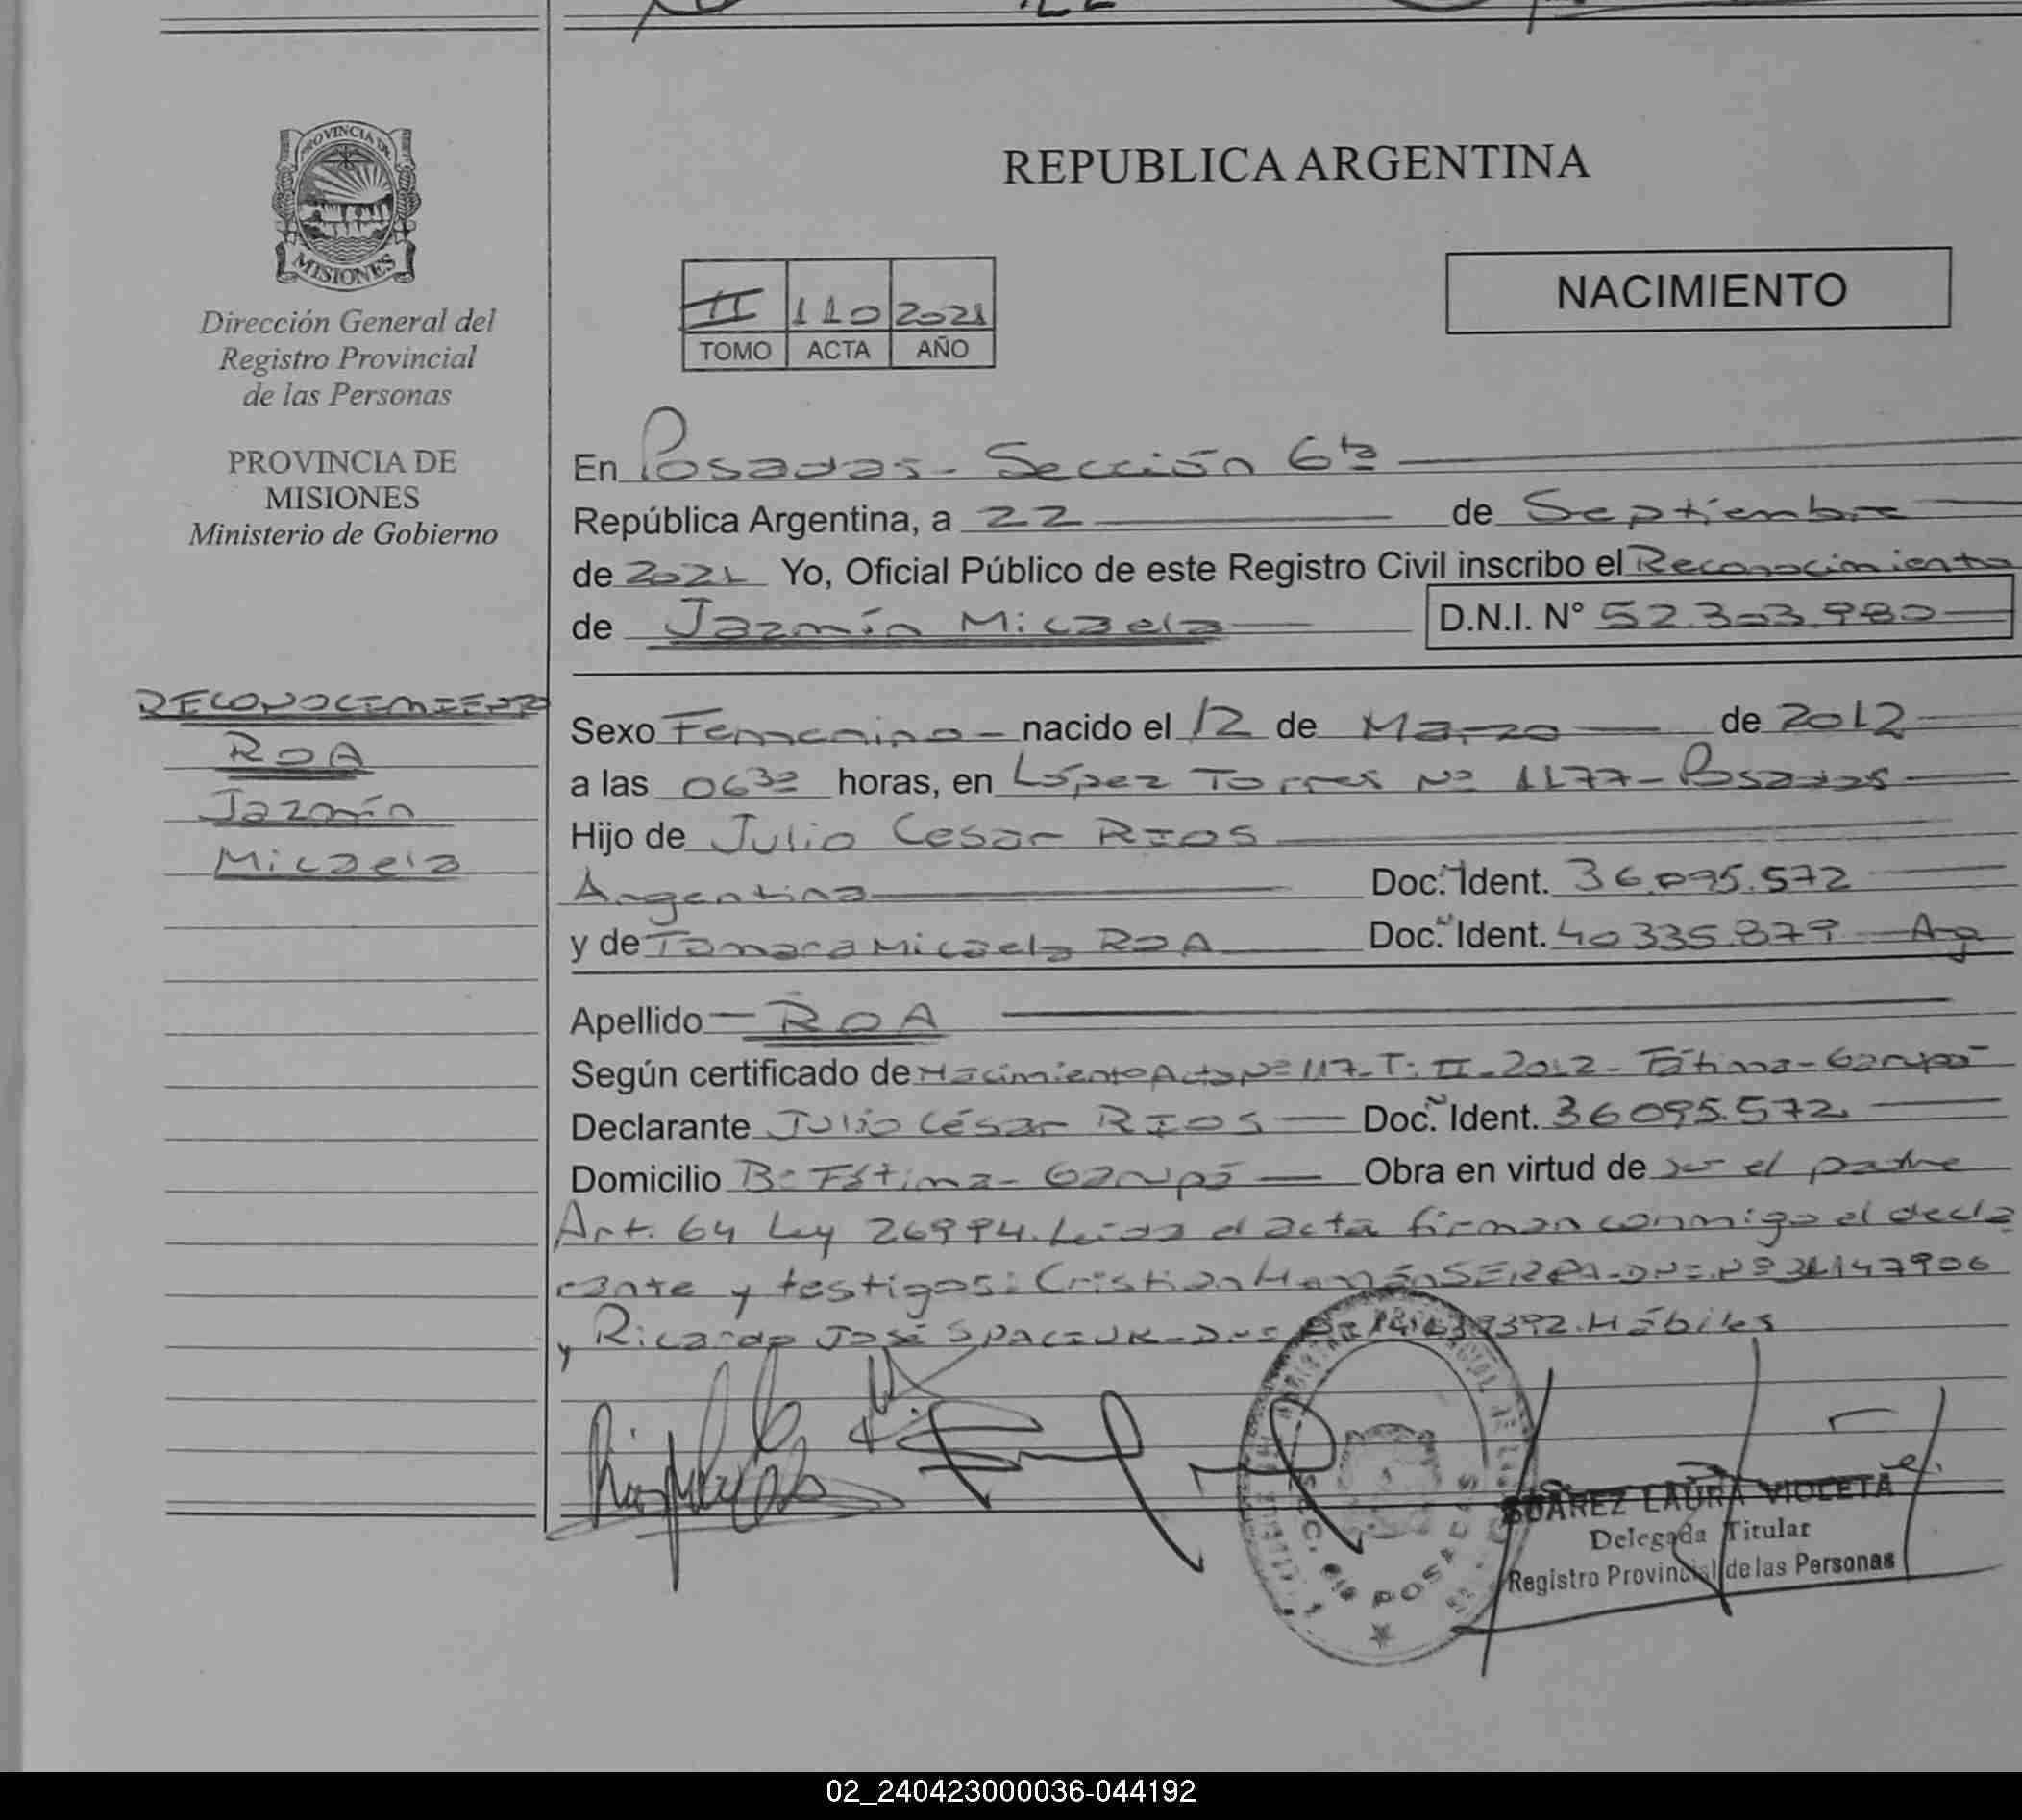 PROVINCIA DE
MISIONES
Dirección General del
Registro Provincial
de las Personas
PROVINCIA DE
MISIONES
Ministerio de Gobierno
RECONOCIMIENTO
ROA
Jazmín
Micaela
REPUBLICA ARGENTINA
II 110 2021
TOMO ACTA AÑO
NACIMIENTO
En Posadas - Sección 6ta
República Argentina, a 22 de Septiembre
de 2021 Yo, Oficial Público de este Registro Civil inscribo el Reconocimiento
de Jazmín Micaela D.N.I. N° 52.303.980
Sexo Femenino - nacido el 12 de Marzo de 2012
a las 06 30 horas, en López Torres Nº 1177 - Posadas
Hijo de Julio Cesar RIOS
Argentina Doc. Ident. 36.095.572
y de Tamara Micaela ROA Doc. Ident. 40335.879 - Arg
Apellido - ROA
Según certificado de Nacimiento Acta Nº 117 - T: II - 2012 - Fátima - Garupá
Declarante Julio César RIOS - Doc. Ident. 36095.572
Domicilio Bº Fátima - Garupá Obra en virtud de ser el padre
Art. 64 Ley 26994. Leída el acta firman conmigo el decla
rante y testigos: Cristian Hernán SERPA - DNI Nº 31147906
y Ricardo José SPACIUK - DNI Hábiles
SEC. 6ta POSADAS
SUAREZ LAURA VIOLETA
Delegada Titular
Registro Provincial de las Personas
02_240423000036-044192